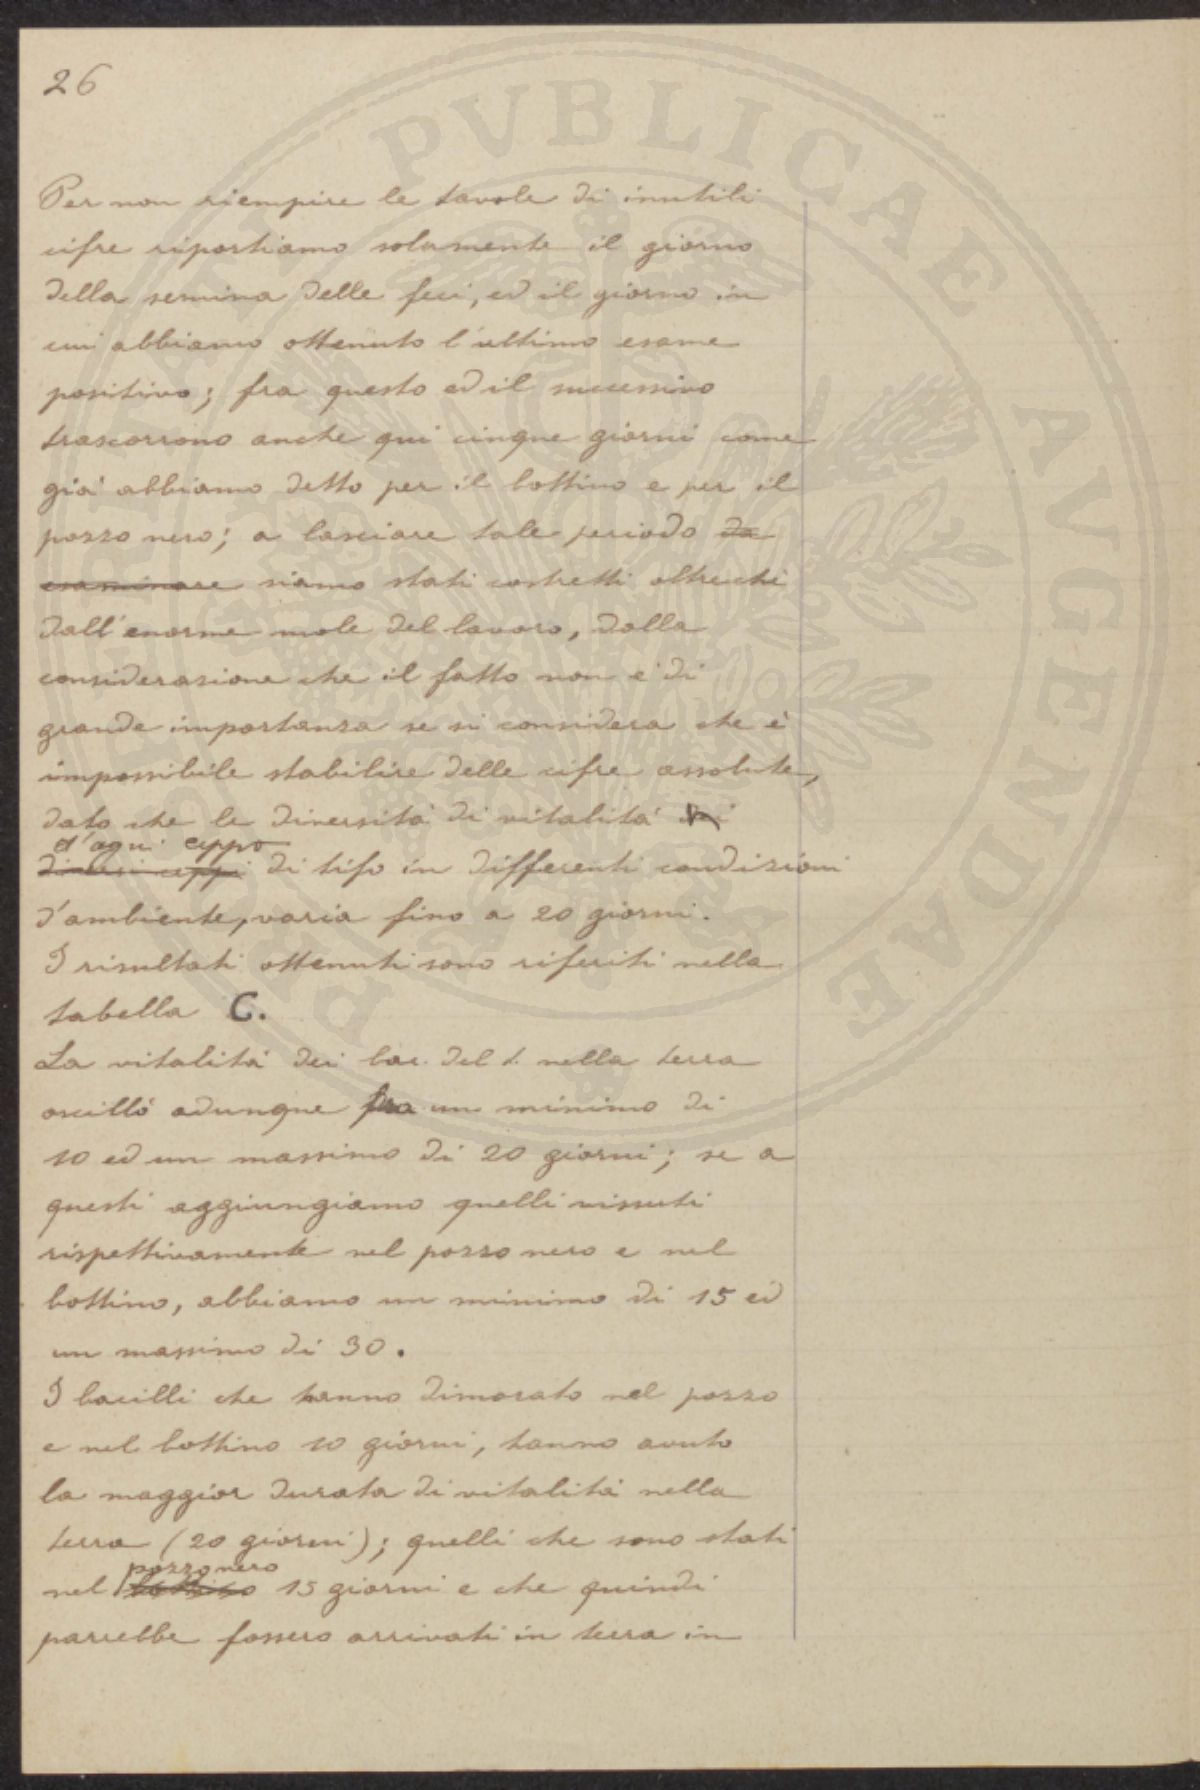 26
Per non riempire le tavole di inutili
cifre riportiamo solamente il giorno
della semina delle feci, ed il giorno in
cui abbiamo ottenuto l'ultimo esame
positivo; fra questo ed il successivo
trascorrono anche qui cinque giorni come
già abbiamo detto per il bottino e per il
pozzo nero; a lasciare tale periodo da
esaminare siamo stati costretti oltreché
dall'enorme mole del lavoro, dalla
considerazione che il fatto non è di
grande importanza se si considera che è
impossibile stabilire delle cifre assolute,
dato che le diversità di vitalità dei
d'ogni ceppo
diversi ceppi di tifo in differenti condizioni
d'ambiente, varia fino a 20 giorni.
I risultati ottenuti sono riferiti nella
tabella C.
La vitalità dei bac. del t. nella terra
oscillò adunque fra un minimo di
10 ed un massimo di 20 giorni; se a
questi aggiungiamo quelli vissuti
rispettivamente nel pozzo nero e nel
bottino, abbiamo un minimo di 15 ed
un massimo di 30.
I bacilli che hanno dimorato nel pozzo
e nel bottino 10 giorni, hanno avuto
la maggior durata di vitalità nella
terra (20 giorni); quelli che sono stati
pozzo nero
nel bottino 15 giorni e che quindi
parrebbe fossero arrivati in terra in
PVBLICAE AVGENDAE